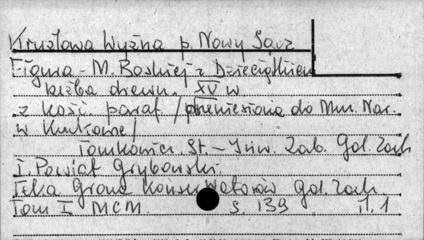 Krużlowa Wyżna p. Nowy Sącz
Figura - M. Boskiej z Dzieciątkiem
rzeźba drewn. XV w
z kośc. paraf /przeniesiona do Muz. Nar.
w Krakowie/
Tomkowicz St. - Inw. Zab. Gal. Zach
I. Powiat Grybowski.
Teka Grona Konserwatorów Gal. Zach
Tom I MCM. S. 139 il. 1